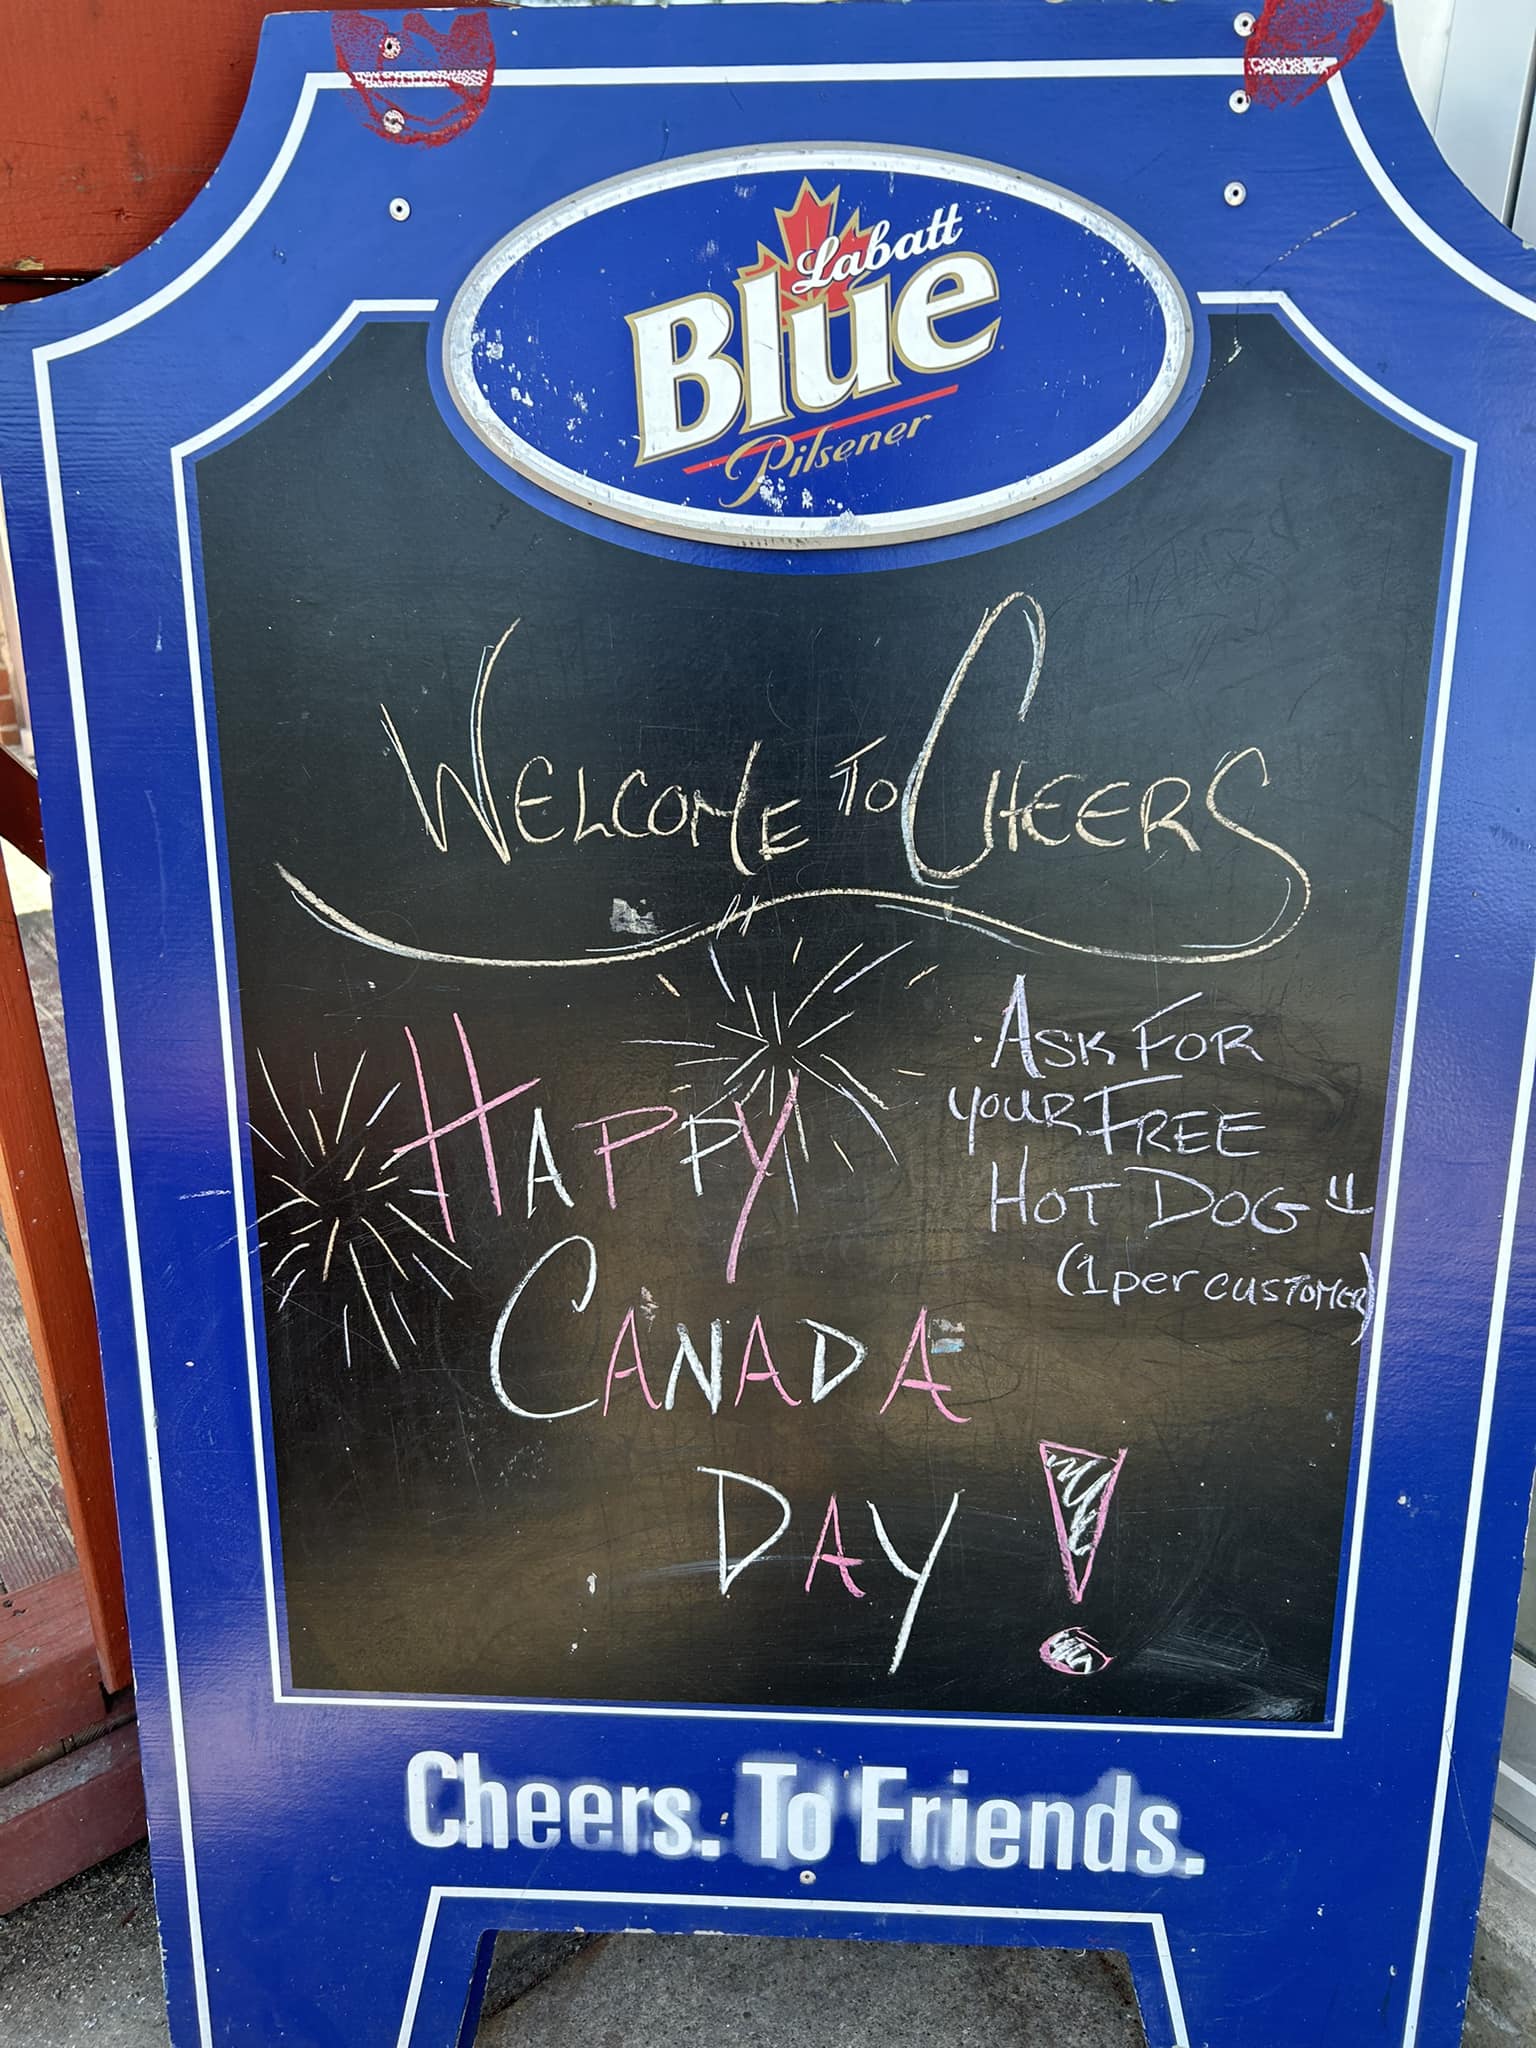 Labatt
Blue
Pilsener
WELCOME TO CHEERS
HAPPY
CANADA
DAY!
ASK FOR
YOUR FREE
HOT DOG
(1 per CUSTOMER)
Cheers. To Friends.